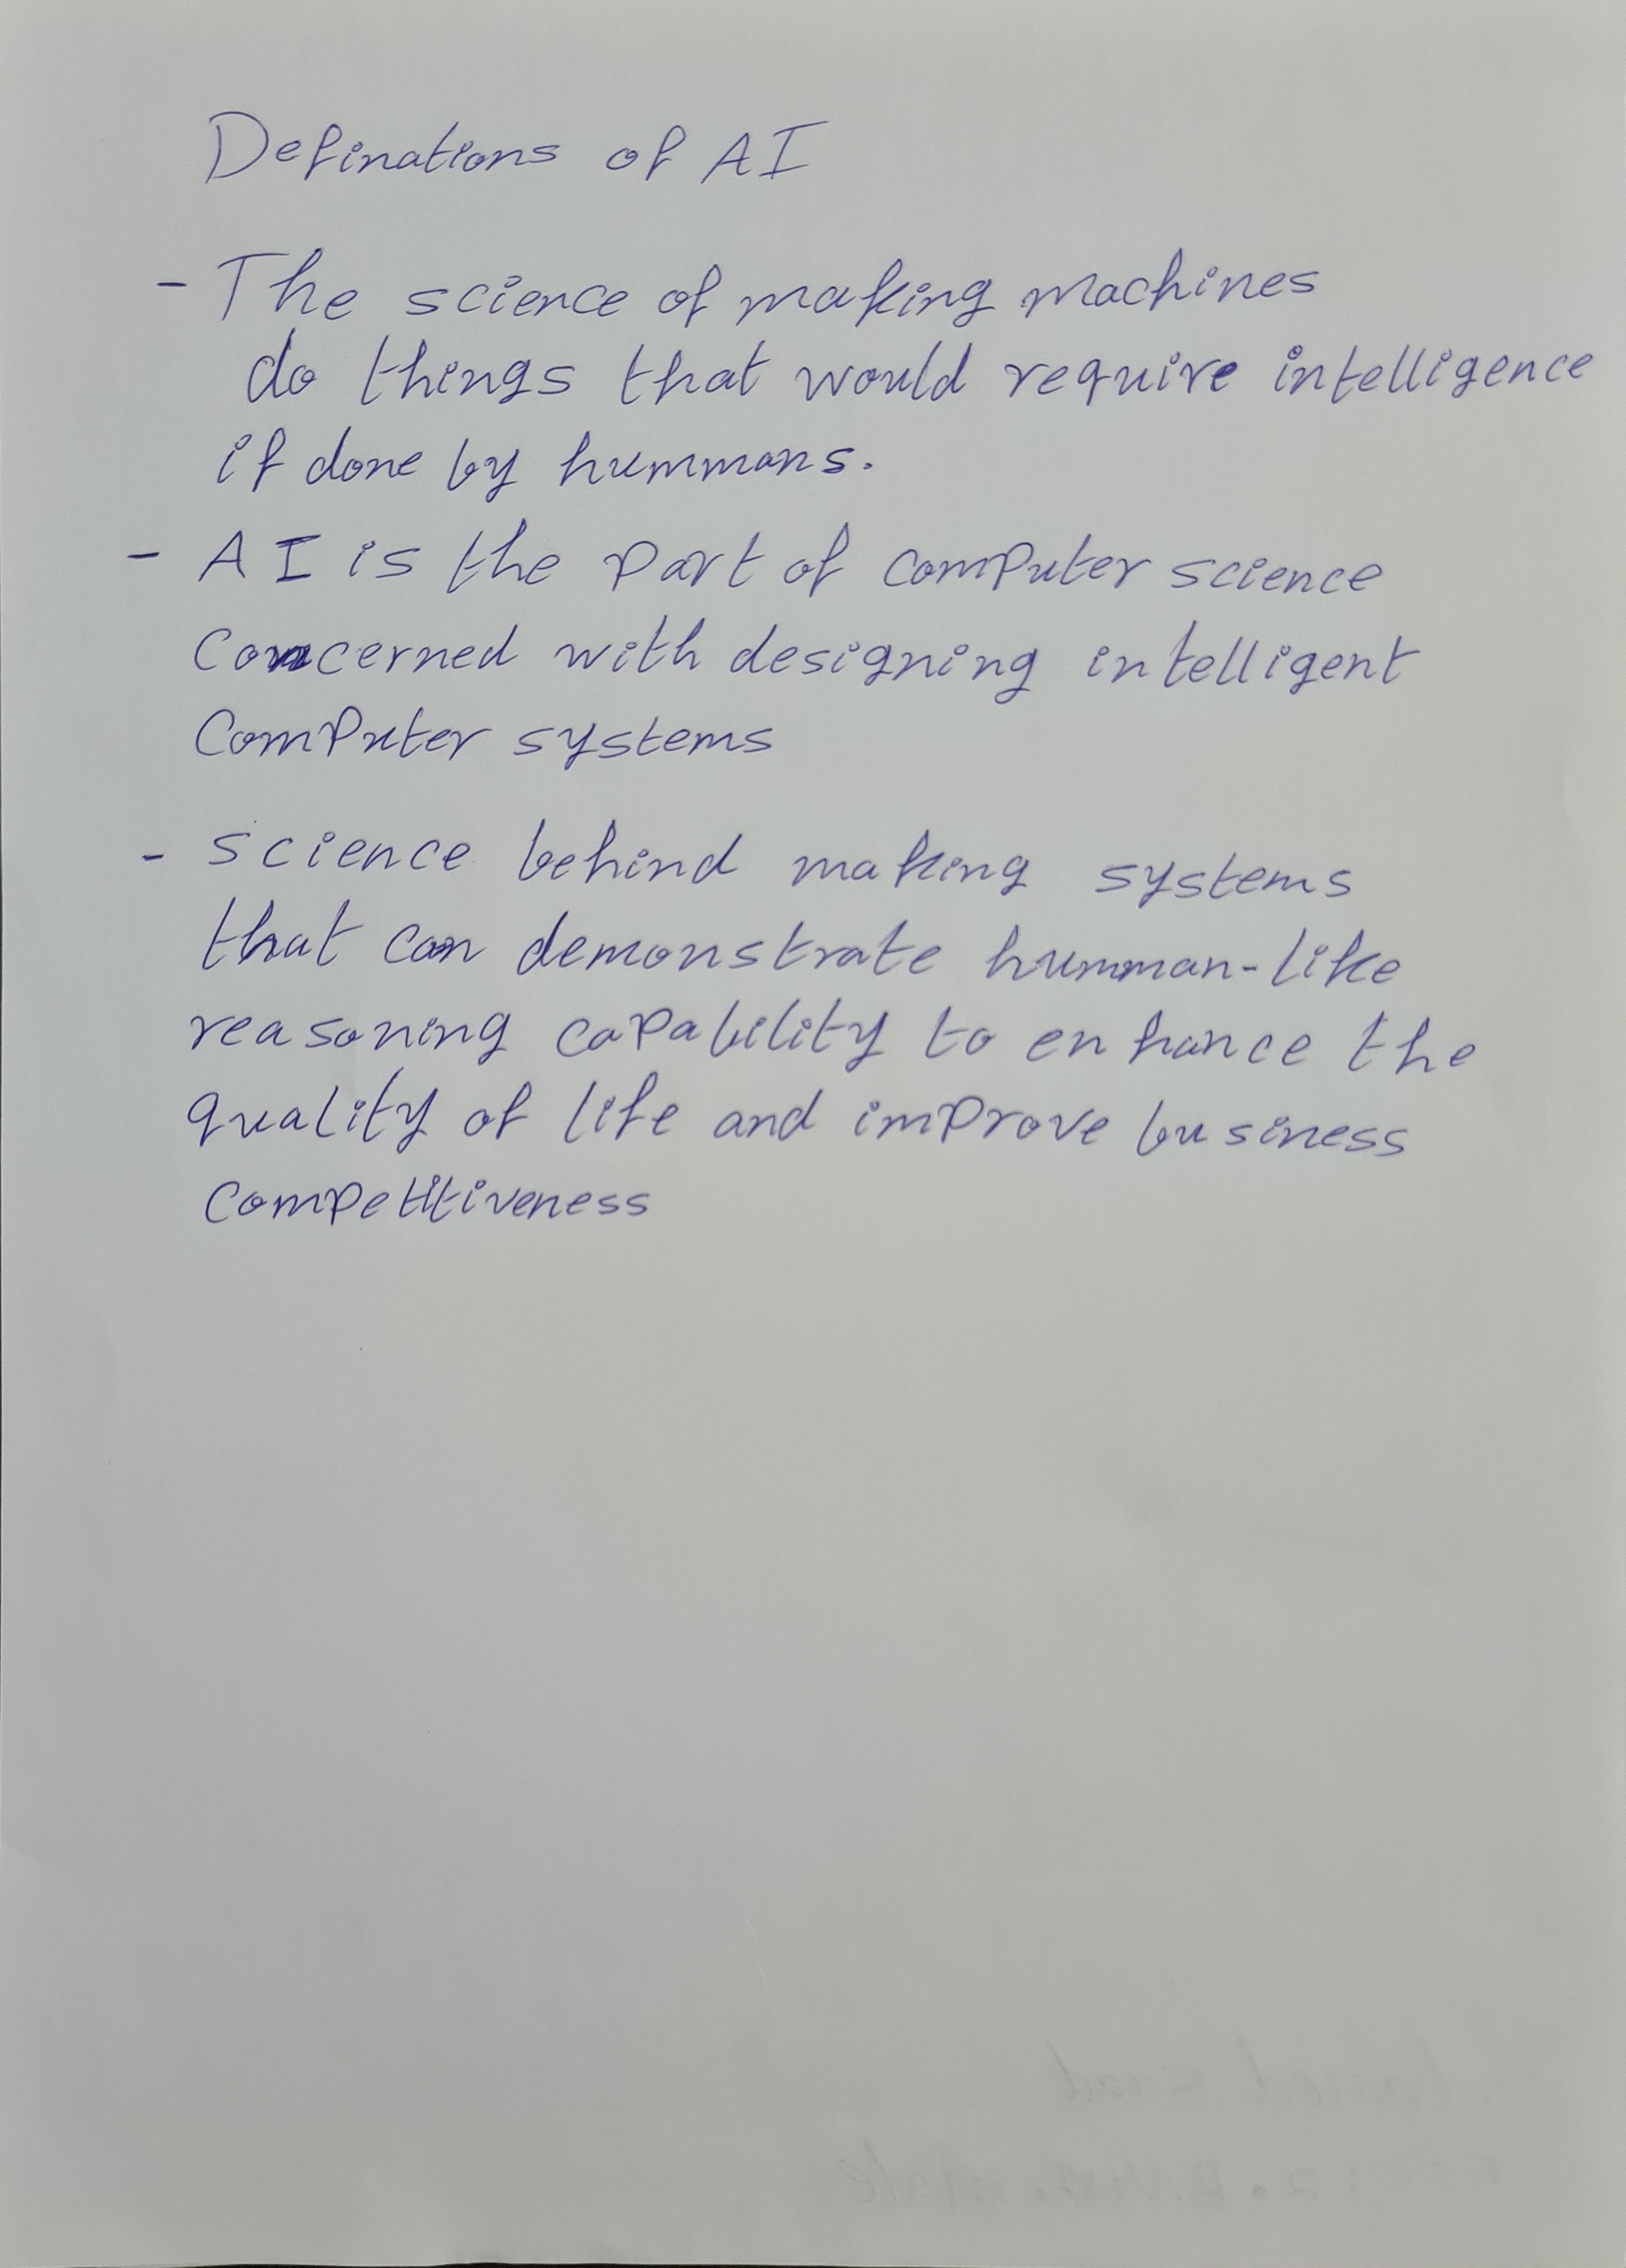 Definations of AI
- The science of making machines
do things that would require intelligence
if done by hummans.
- AI is the part of computer science
Concerned with designing intelligent
Computer systems
- science behind making systems
that can demonstrate humman-like
reasoning capability to enhance the
quality of life and improve business
Competititiveness